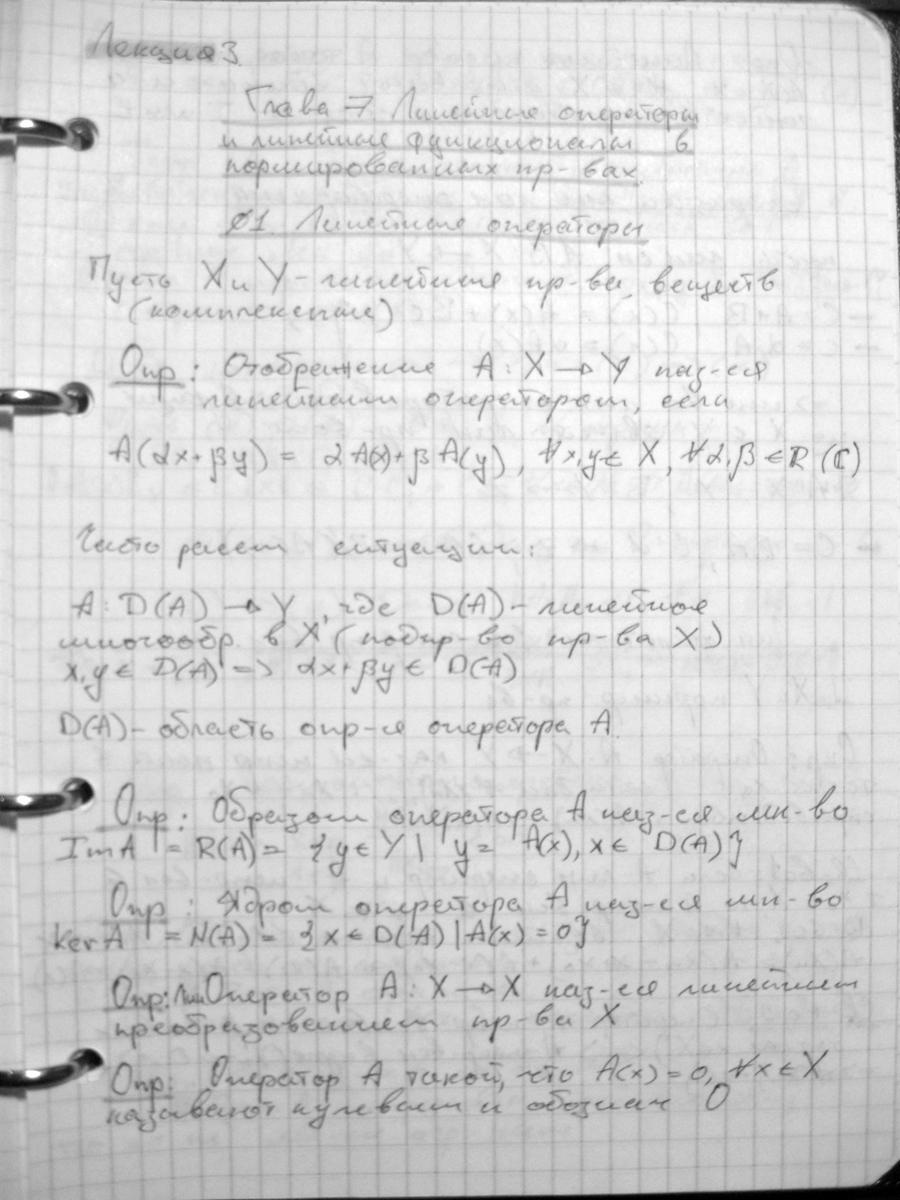 Лекция 3.
Глава 7 Линейные операторы
и линейные функционалы в
нормированных пр-вах.
§1 Линейные операторы
Пусть X и Y - линейные пр-ва, веществ
(комплексные)
Опр: Отображение A: X → Y наз-ся
линейным оператором, если
A(αx+βy) = αA(x)+βA(y), ∀x,y∈X, ∀α,β∈ℝ(ℂ)
Часто рассм ситуации:
A: D(A) → Y, где D(A) - линейное
многообр. в X (подпр-во пр-ва X)
x,y ∈ D(A) => αx+βy ∈ D(A)
D(A) - область опр-я оператора A.
Опр: Образом оператора A наз-ся мн-во
Im A = R(A) = {y∈Y | y = A(x), x∈D(A)}
Опр: Ядром оператора A наз-ся мн-во
ker A = N(A) = {x∈D(A) | A(x) = 0}
Опр: Лин Оператор A: X → X наз-ся линейным
преобразованием пр-ва X
Опр: Оператор A такой, что A(x) = 0, ∀x∈X
называют нулевым и обознач O